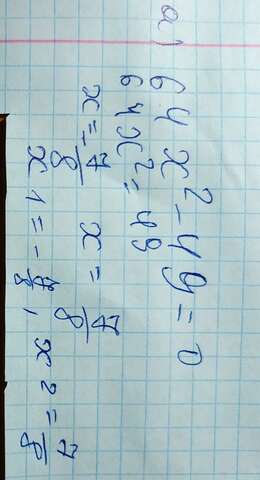 a)
64x²-49=0
64x²=49
x=-7/8 x=7/8
x1=-7/8, x2=7/8